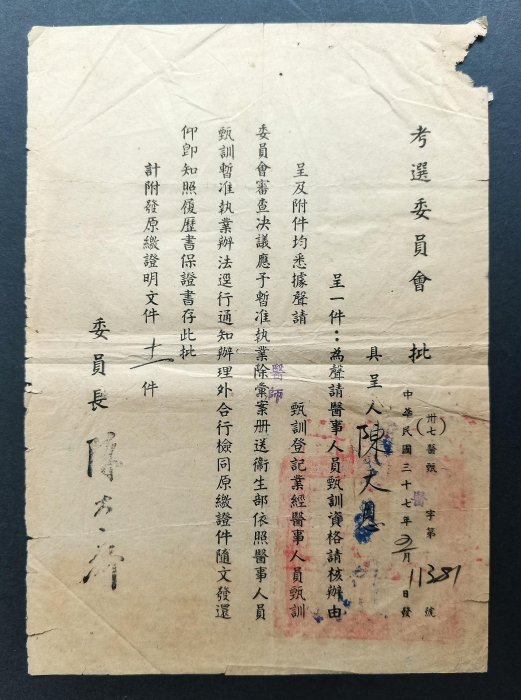 考選委員會 批
(卅七)醫甄 醫 字第11381號
中華民國三十七年 月 日發
具呈人陳大恩
呈一件：為聲請醫事人員甄訓資格請核辦由
呈及附件均悉據聲請 醫師 甄訓登記業經醫事人員甄訓
委員會審查決議應予暫准執業除彙案册送衛生部依照醫事人員
甄訓暫准執業辦法逕行通知辦理外合行檢同原繳證件隨文發還
仰卽知照履歷書保證書存此批
計附發原繳證明文件十一件
委員長 陳大齊